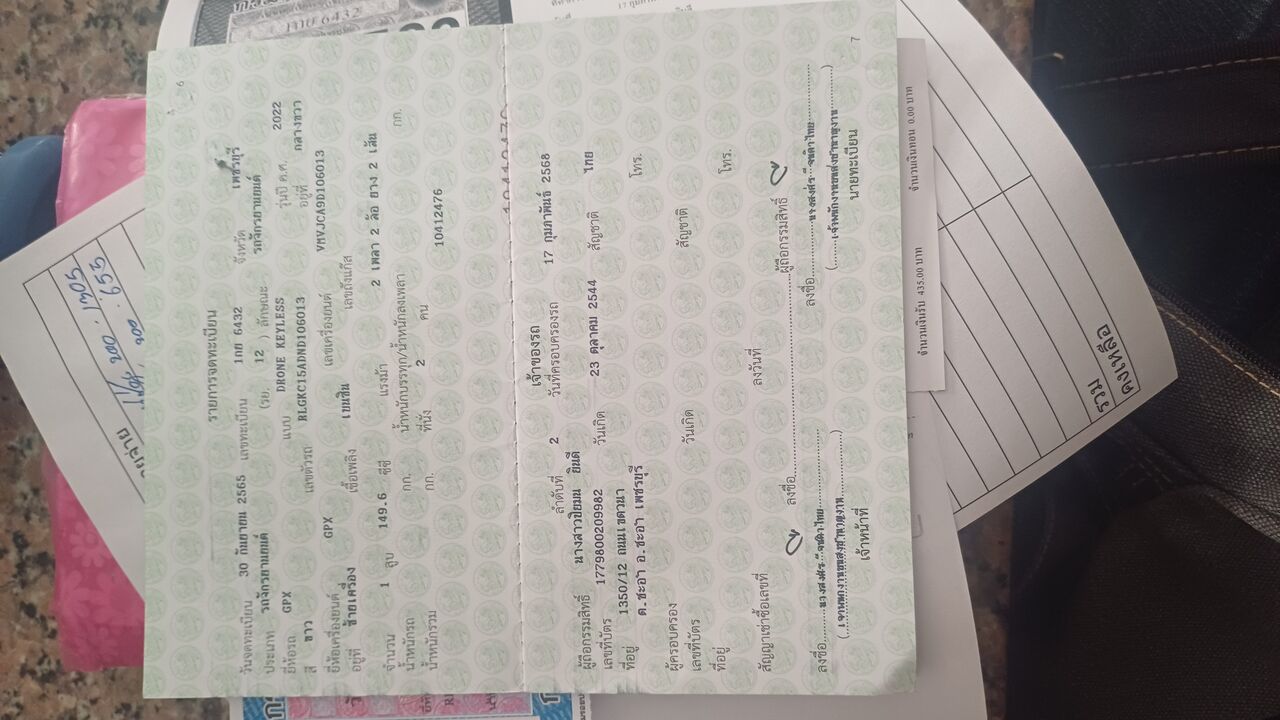 6
รายการจดทะเบียน
วันจดทะเบียน 30 กันยายน 2565 เลขทะเบียน 1กย 6432 จังหวัด เพชรบุรี
ประเภท รถจักรยานยนต์ (รย. 12 ) ลักษณะ รถจักรยานยนต์
ยี่ห้อรถ GPX แบบ DRONE KEYLESS รุ่นปี ค.ศ. 2022
สี ขาว เลขตัวรถ RLGKC15ADND106013 อยู่ที่ กลางขวา
ยี่ห้อเครื่องยนต์ GPX เลขเครื่องยนต์ VMVJCA9D106013
อยู่ที่ ซ้ายเครื่อง เชื้อเพลิง เบนซิน เลขถังแก๊ส
จำนวน 1 สูบ 149.6 ซีซี แรงม้า 2 เพลา 2 ล้อ ยาง 2 เส้น
น้ำหนักรถ กก. น้ำหนักบรรทุก/น้ำหนักลงเพลา กก.
น้ำหนักรวม กก. ที่นั่ง 2 คน
10412476
เจ้าของรถ
ลำดับที่ 2 วันที่ครอบครองรถ 17 กุมภาพันธ์ 2568
ผู้ถือกรรมสิทธิ์ นางสาวปิยมน ยินดี
เลขที่บัตร 1779800209982 วันเกิด 23 ตุลาคม 2544 สัญชาติ ไทย
ที่อยู่ 1350/12 ถนนเขตวนา โทร.
ต.ชะอำ อ.ชะอำ เพชรบุรี
ผู้ครอบครอง
เลขที่บัตร วันเกิด สัญชาติ
ที่อยู่ โทร.
สัญญาเช่าซื้อเลขที่ ลงวันที่
ลงชื่อ ผู้ถือกรรมสิทธิ์
ลงชื่อ ลงชื่อ
เจ้าหน้าที่ นายทะเบียน
7
1กย 6432
จำนวนเงินรับ 435.00 บาท จำนวนเงินทอน 0.00 บาท
รวม
คงเหลือ